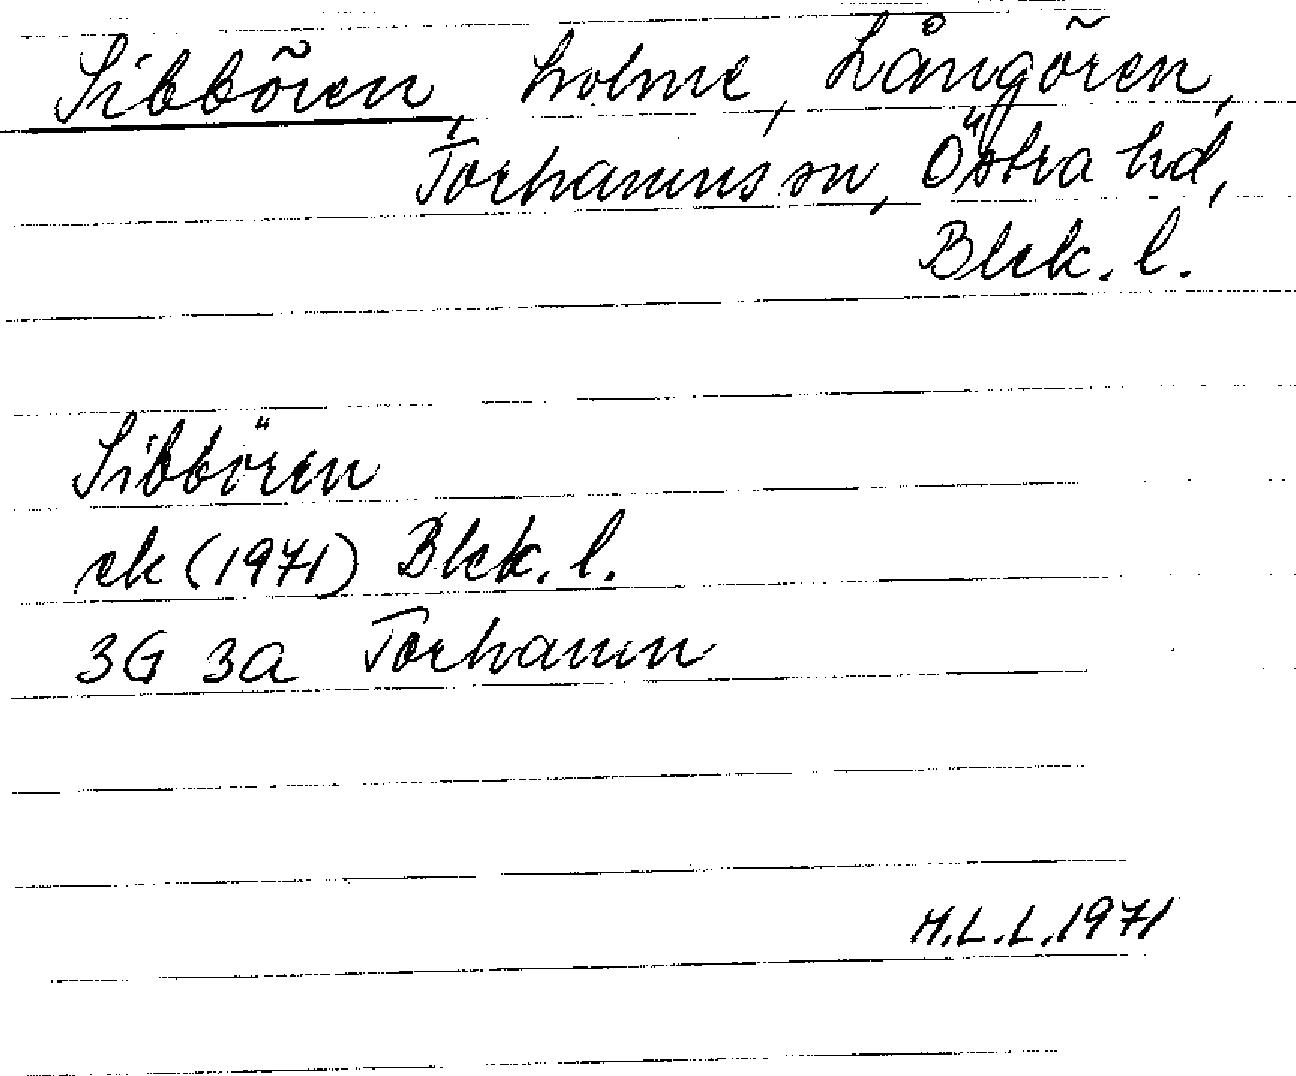 Sibbören, holme, Långören,
Torhamns sn, Östra hd,
Blek. l.
Sibbören
ek (1971) Blek. l.
3G 3a Torhamn
H.L.L. 1971